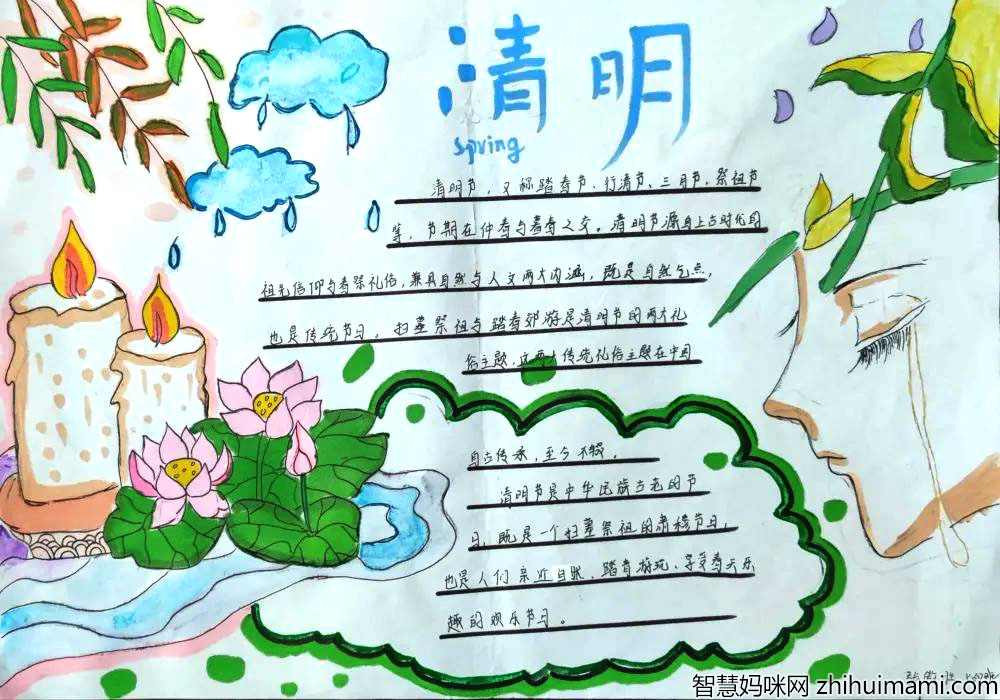 清明
spring
清明节，又称踏青节、行清节、三月节、祭祖节
等，节期在仲春与暮春之交。清明节源自上古时代的
祖先信仰与春祭礼俗，兼具自然与人文两大内涵，既是自然气点，
也是传统节日。扫墓祭祖与踏青郊游是清明节的两大礼
俗主题，这两大传统礼俗主题在中国
自古传承，至今不辍。
清明节是中华民族古老的节
日，既是一个扫墓祭祖的肃穆节日，
也是人们亲近自然、踏青游玩、享受春天乐
趣的欢乐节日。
智慧妈咪网 zhihuimami.com